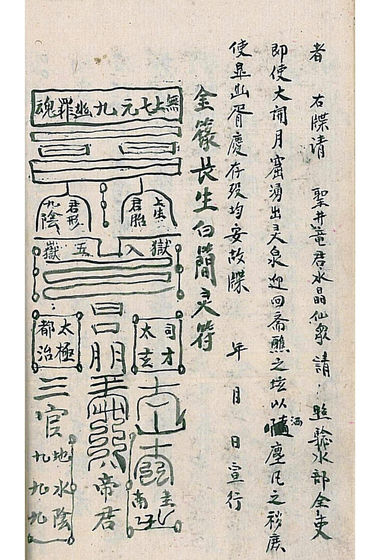 者 右牒請 聖井龍君水晶仙衆請 照驗水部全吏
即使大開月窟湧出灵泉迎回斋醮之坛以洒塵凡之秽庶
使显幽胥慶存殁均安故牒 年 月 日宣行
金籙長生白簡灵符
無上七元九幽罪魂
长生君胎
九陰君形
獄入五嶽
司才太玄
太極都治
三官
帝君
地水陰
九九九